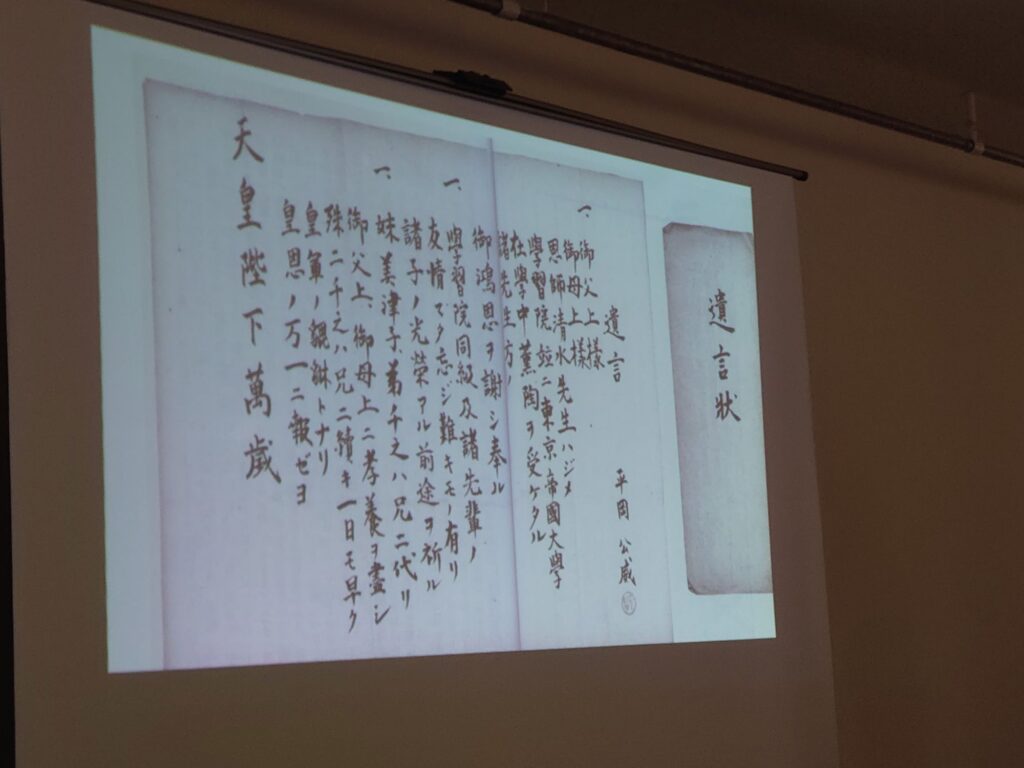 遺言状
遺言
平岡公威
一、御父上様
御母上様
恩師清水先生ハジメ
學習院並ニ東京帝國大學
在學中薫陶ヲ受ケタル
諸先生方ノ
御鴻恩ヲ謝シ奉ル
一、學習院同級及諸先輩ノ
友情マタ忘ジ難キモノ有リ
諸子ノ光榮アル前途ヲ祈ル
一、妹美津子、弟千之ハ兄ニ代リ
御父上、御母上ニ孝養ヲ盡シ
殊ニ千之ハ兄ニ續キ一日モ早ク
皇軍ノ貔貅トナリ
皇恩ノ万一ニ報ゼヨ
天皇陛下萬歳